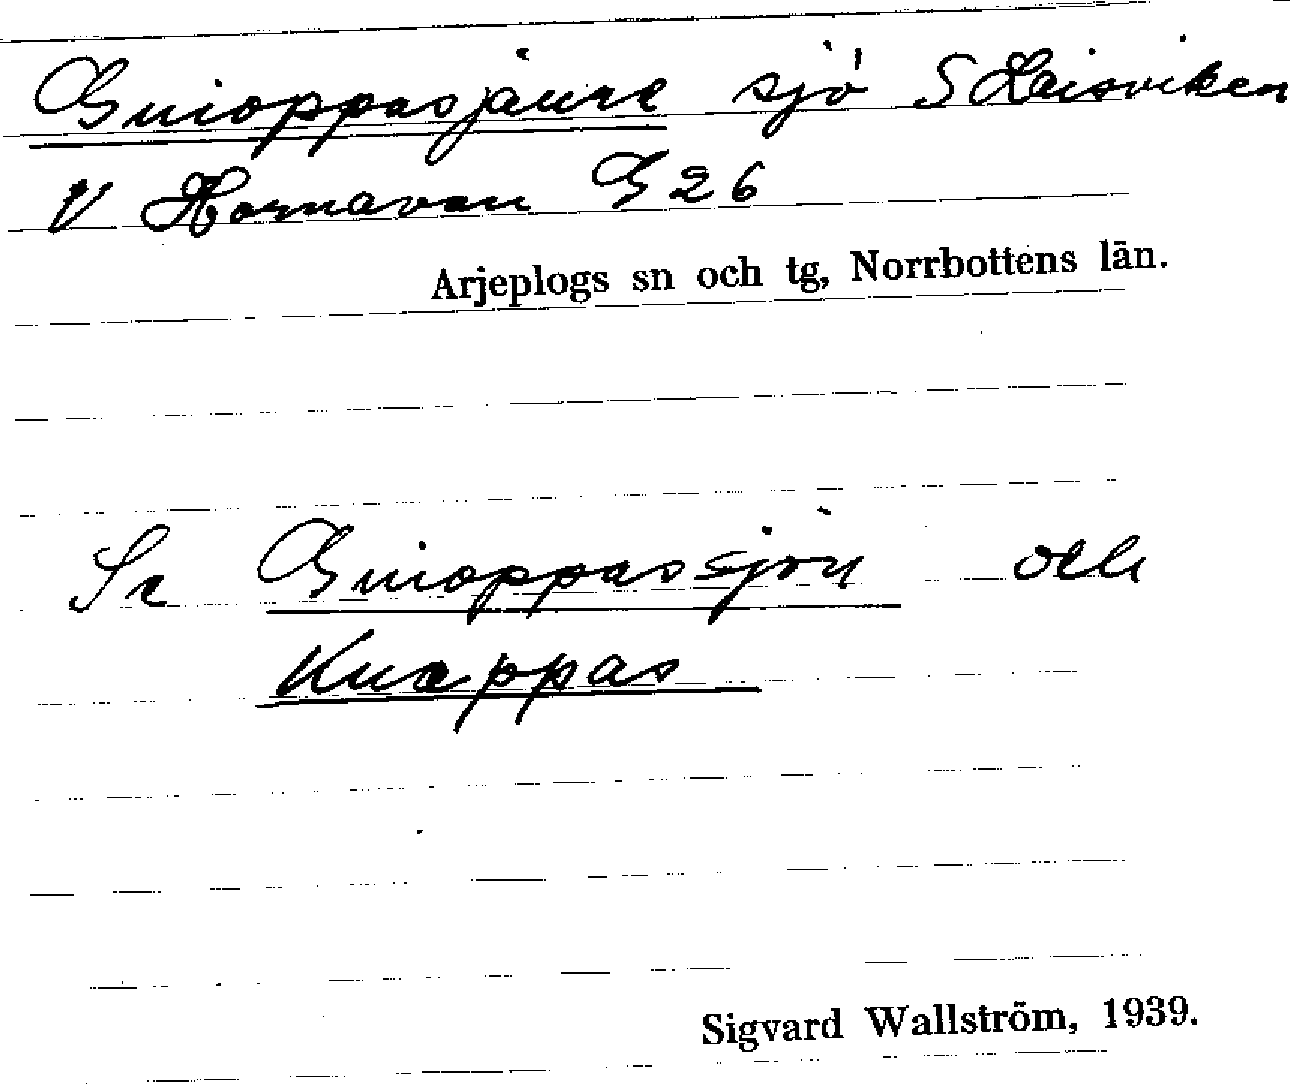 Guioppasjaure sjö S Laisviken
V Hornavan G 26
Arjeplogs sn och tg, Norrbottens län.
Se Guioppassjön och
Knappas
Sigvard Wallström, 1939.